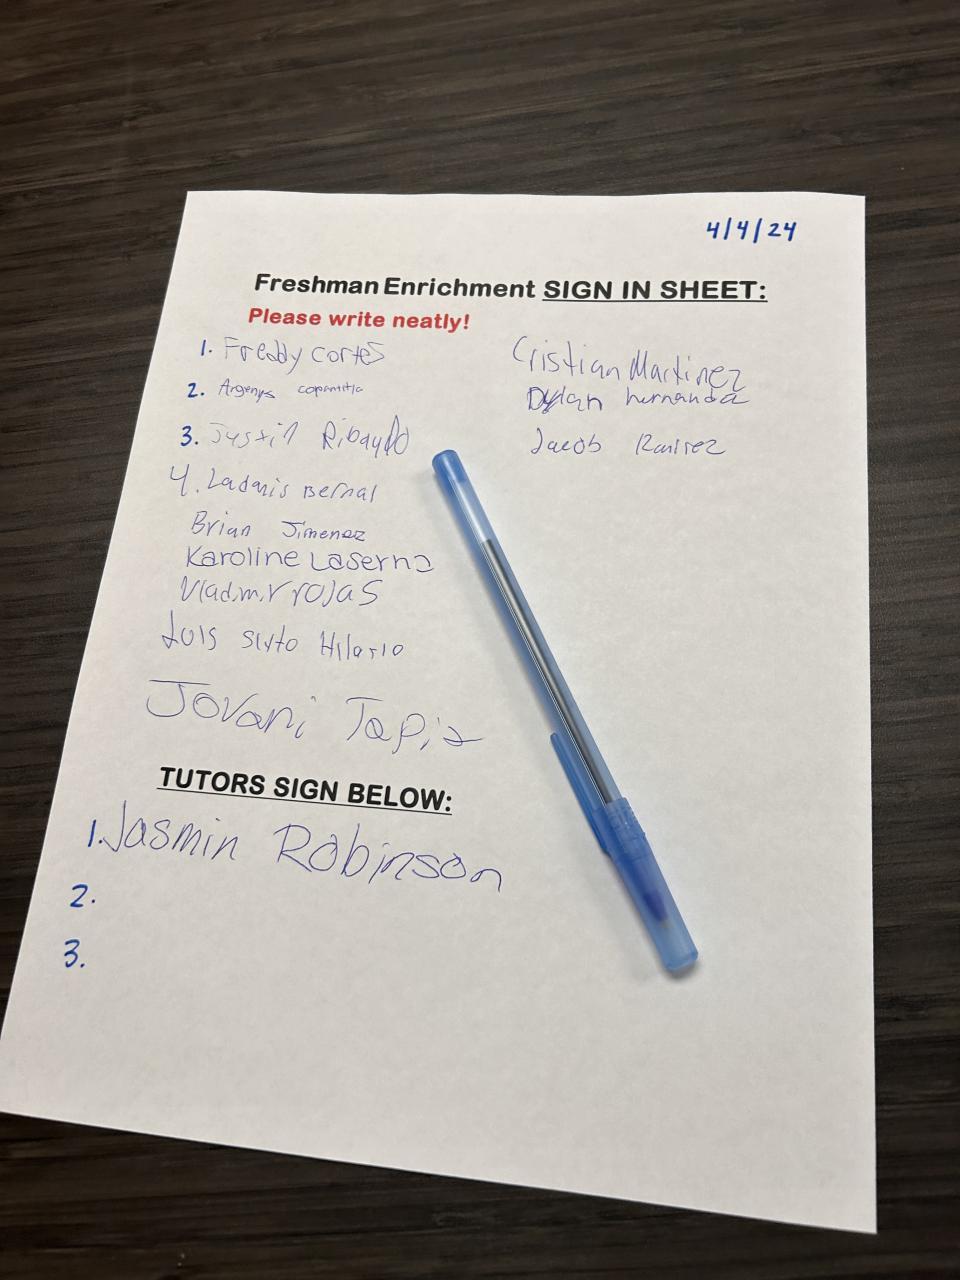 4/4/24
Freshman Enrichment SIGN IN SHEET:
Please write neatly!
1. Freddy Cortes
2. Argenys copantitla
3. Justin Ribaudo
4. Ladanis Bernal
Brian Jimenez
Karoline Laserna
Vladimir rojas
Luis sixto Hilario
Jovani Tapia
Cristian Martinez
Dylan hernandez
Jacob Ramirez
TUTORS SIGN BELOW:
1. Jasmin Robinson
2.
3.